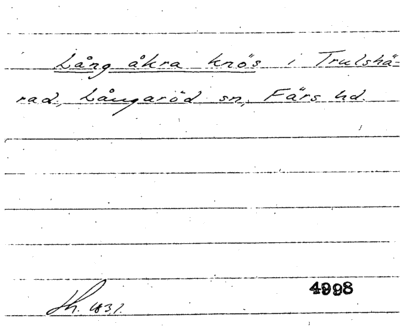 Lång åkra knös i Trulshä-
rad, Långaröd sn, Färs hd
4998